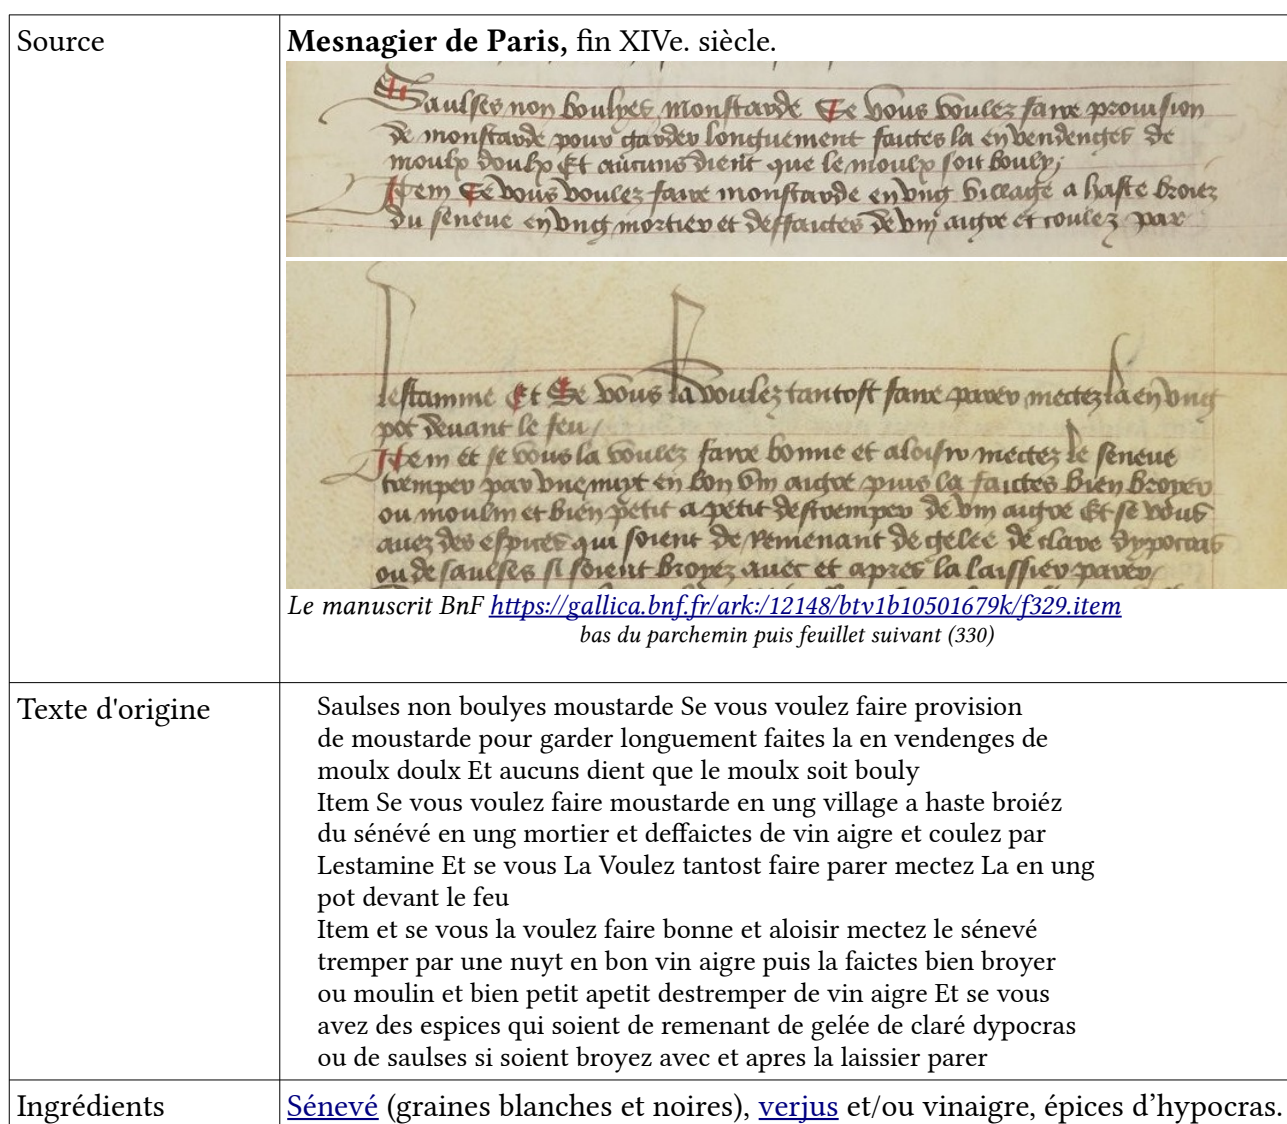 Source
Mesnagier de Paris, fin XIVe. siècle.
Saulses non boulyes moustarde Se vous voulez faire provision
de moustarde pour garder longuement faictes la en vendenges de
moulx doulx Et aucuns dient que le moulx soit bouly
Item Se vous voulez faire moustarde en ung village a haste broiez
du seneve en ung mortier et deffaictes de vin aigre et coulez par
Lestamine Et Se vous la voulez tantost faire parer mectez la en ung
pot devant le feu
Item et se vous la voulez faire bonne et a loisir mectez le seneve
tremper par une nuyt en bon vin aigre puis la faictes bien broyer
ou moulin et bien petit a petit destremper de vin aigre Et se vous
avez des espices qui soient de Remenant de gelee de clare dypocras
ou de saulses si soient broyez avec et apres la laissier parer
Le manuscrit BnF https://gallica.bnf.fr/ark:/12148/btv1b10501679k/f329.item
bas du parchemin puis feuillet suivant (330)
Texte d'origine
Saulses non boulyes moustarde Se vous voulez faire provision
de moustarde pour garder longuement faites la en vendenges de
moulx doulx Et aucuns dient que le moulx soit bouly
Item Se vous voulez faire moustarde en ung village a haste broiéz
du sénévé en ung mortier et deffaictes de vin aigre et coulez par
Lestamine Et se vous La Voulez tantost faire parer mectez La en ung
pot devant le feu
Item et se vous la voulez faire bonne et aloisir mectez le sénevé
tremper par une nuyt en bon vin aigre puis la faictes bien broyer
ou moulin et bien petit apetit destremper de vin aigre Et se vous
avez des espices qui soient de remenant de gelée de claré dypocras
ou de saulses si soient broyez avec et apres la laissier parer
Ingrédients
Sénevé (graines blanches et noires), verjus et/ou vinaigre, épices d’hypocras.